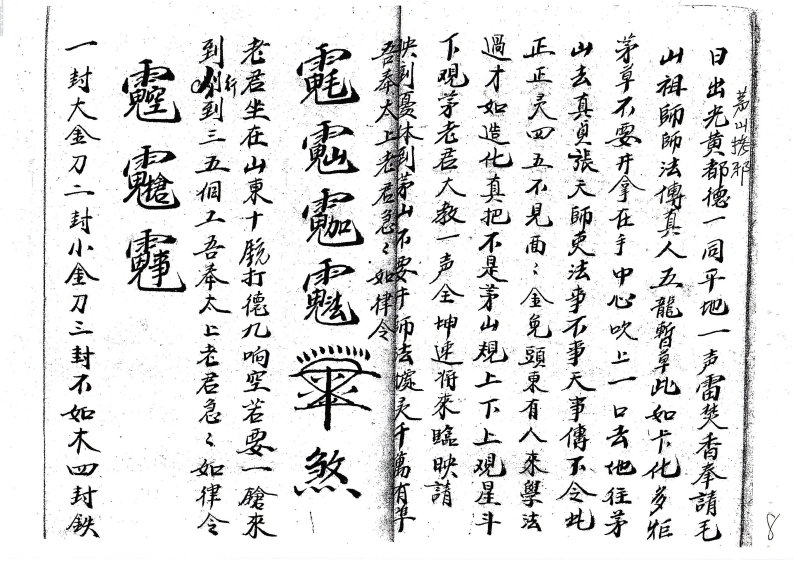 茅山
日出光黄都德一同平地一声雷焚香奉請毛
山祖師師法傳真人五龍暫草此如卡化多
茅草不要开拿在手中心吹上一口去他往茅
山去真真張天師吏法事不事天事傳不令此
正正灵四五不見面〻金兔頭東有人來學法
過才如造化真把不是茅山規上下上观星斗
下观茅老君大教一声全坤速将來臨映請
映到憂休到茅山不要开师去 灵千萬有准
吾奉太上老君急〻如律令
煞
老君坐在山東十 打德九响空若要一 來
到行到三五個工吾奉太上老君急〻如律令
一封大金刀二封小金刀三封不如木四封鉄
8